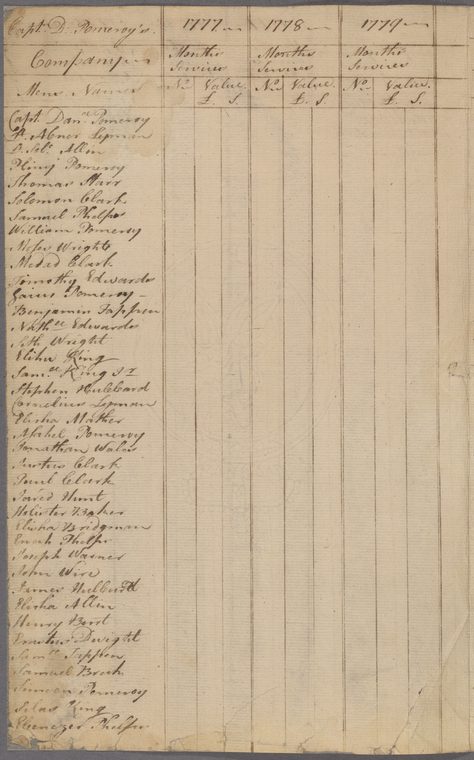 Capt. D. Pomeroy's 1777 1778 1779
Company Months Months Months
Services Services Services
Mens Names No Value. No Value. No Value.
£. S. £. S. £. S.
Capt. Danl Pomeroy
Lt. Abner Lyman
Allin
Pliny Pomeroy
Thomas Starr
Solomon Clark
Samuel Phelps
William Pomeroy
Moses Wright
Medad Clark
Timothy Edwards
Gaius Pomeroy
Benjamin Tappen
Nathll Edwards
Seth Wright
Elihu King
Samll King Jr
Stephen Hubbard
Cornelius Lyman
Elisha Mather
Pomeroy
Jonathan Wales
Justus Clark
Paul Clark
Jared Hunt
Holister Baker
Elisha Bridgman
Enoch Phelps
Joseph Warner
John Wire
James Hulburd
Elisha Allin
Henry
Dwight
Samll Tappen
Samuel Breck
Simeon Pomeroy
Silas King
Ebenezer Phelps